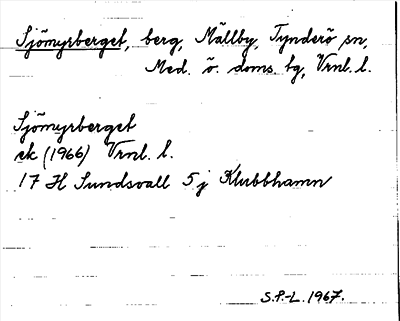 Sjömyrberget, berg, Mällby, Tynderö sn,
Med. ö. doms. tg, Vrnl. l.
Sjömyrberget
ek (1966) Vrnl. l.
17 H Sundsvall 5 j Klubbhamn
S.P.-L. 1967.